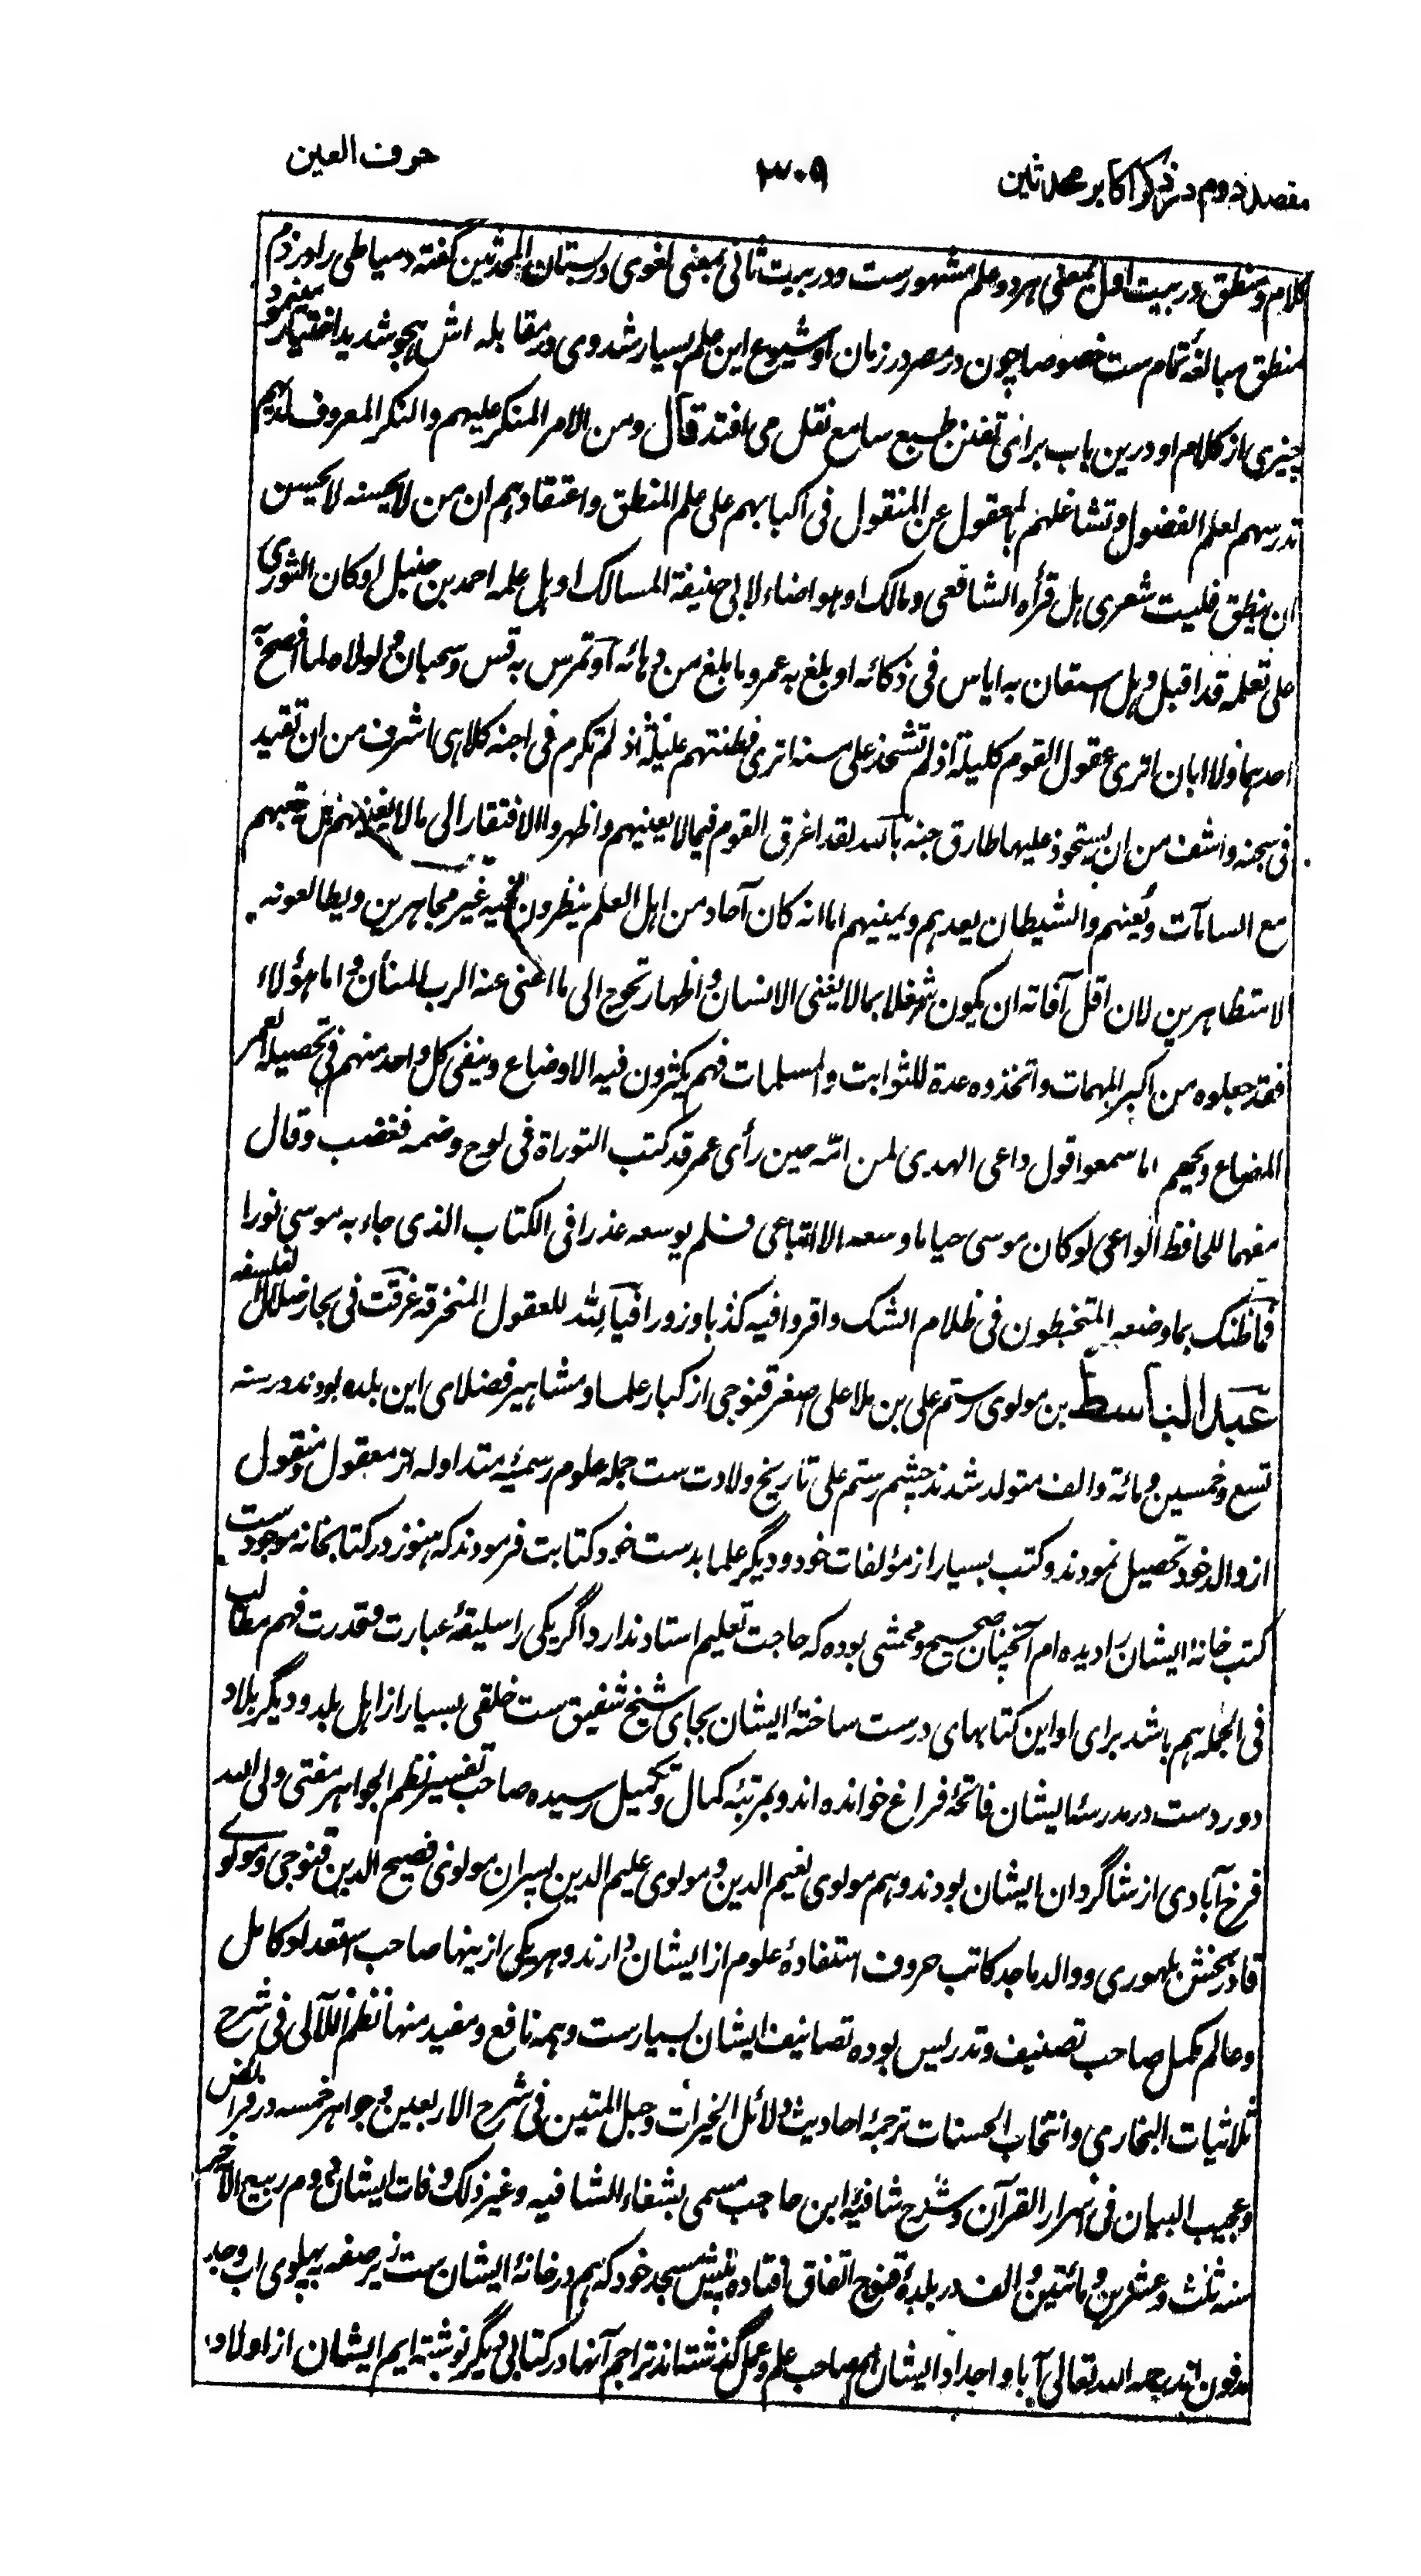 مقصد دوم در ذکر اکابر محدثین
۳۰۹
حرف العین
کلام و منطق در بیت اول بمعنی هر دو علم مشهورست و در بیت ثانی بمعنی لغوی در بستان المحدثین گفته دمیاطی را در ذم
منطق مبالغهٔ تمام ست خصوصا چون در مصر در زمان او شیوع این علم بسیار شد وی در مقابله اش هجو شدید اختیار میفرمود
چیزی از کلام او درین باب برای تفنن طبع سامع نقل می افتد قال ومن الامر المنکر علیهم والنکر المعروف لدیهم
تدرسهم لعلم الفضول وتشاغلهم بالمعقول عن المنقول فی اکبابهم علی علم المنطق واعتقادهم ان من لا یحسنه لا یحسن
ان ینطق فلیت شعری هل قرأه الشافعی ومالک او هو اضاء لابی حنیفة المسالک او هل علمه احمد بن حنبل او کان الثوری
علی تعلمه قد اقبل وهل استعان به ایاس فی ذکائه او بلغ به عمرو ما بلغ من دهائه او تمرس به قس وسحبان ولولاه لما افصح به
احدهما ولا ابان اتری عقول القوم کلیلة اذ لم تشحذ علی مسنه اتری فطنتهم علیلة اذ لم تکرم فی اجنه کلا هی اشرف من ان تقید
فی سجنه واشف من ان یستحوذ علیها طارق جنه تالله لقد اغرق القوم فیما لا یعنیهم واظهروا الافتقار الی ما لا یغنیهم بل یتعبهم
مع الساعات ویعنیهم والشیطان یعدهم ویمنیهم اما انه کان آحاد من اهل العلم ینظرون فیه غیر مجاهرین ویطالعونه
لا متظاهرین لان اقل آفاته ان یکون شغلا بما لا یغنی الانسان واظهار تحوج الی ما اغنی عنه الرب المنان واما هؤلاء
فقد جعلوه من اکبر المهمات واتخذوه عدة للثوابت والمسلمات فهم یکثرون فیه الاوضاع وینفق کل واحد منهم فی تحصیله العمر
المضاع ویحهم اما سمعوا قول داعی الهدی لمن امه حین رأی عمر قد کتب التوراة فی لوح وضمه فغضب وقال
مفهما للحافظ الواعی لو کان موسی حیا ما وسعه الا اتباعی فلم یوسعه عذرا فی الکتاب الذی جاء به موسی نورا
فما ظنک بما وضعه المتخبطون فی ظلام الشک واقروا فیه کذبا وزورا فیا لله للعقول المنخرقة غرقت فی بحار ضلال الفلسفه
عبد الباسط بن مولوی رستم علی بن ملا علی اصغر قنوجی از کبار علما و مشاهیر فضلای این بلده بودند در سنه
تسع و خمسین و مائة والف متولد شدند چشم رستم علی تاریخ ولادت ست جمله علوم رسمیهٔ متداوله از معقول و منقول
از والد خود تحصیل نمودند و کتب بسیار از مؤلفات خود و دیگر علما بدست خود کتابت فرمودند که هنوز در کتابخانه موجود ست
کتب خانهٔ ایشان را دیده ام آنچنان صحیح و محشی بوده که حاجت تعلیم استاد ندارد اگر یکی را سلیقهٔ عبارت و قدرت فهم مطالب
فی الجمله هم باشد برای او این کتابهای درست ساختهٔ ایشان بجای شیخ شفیق ست خلقی بسیار از اهل بلد و دیگر بلاد
دور دست در مدرسهٔ ایشان فاتحهٔ فراغ خوانده اند و بمرتبهٔ کمال و تکمیل رسیده صاحب تفسیر نظم الجواهر مفتی ولی الله
فرخ آبادی از شاگردان ایشان بودند و هم مولوی نعیم الدین و مولوی علیم الدین پسران مولوی فصیح الدین قنوجی و مولوی
قادر بخش بلهوری و والد ماجد کاتب حروف استفادهٔ علوم از ایشان دارند و هر یکی از ینها صاحب استعداد کامل
و عالم مکمل صاحب تصنیف و تدریس بوده تصانیف ایشان بسیارست و همه نافع و مفید منها نظم اللآلی فی شرح
ثلاثیات البخاری و انتخاب الحسنات ترجمهٔ احادیث دلائل الخیرات و حبل المتین فی شرح الاربعین و جواهر خمسه در فرائض
و عجیب البیان فی اسرار القرآن و شرح شافیهٔ ابن حاجب مسمی بشفاء الشافیه وغیر ذلک وفات ایشان دوم ربیع الآخر
سنه ثلث و عشرین و مائتین و الف در بلدهٔ قنوج اتفاق افتاده پیش مسجد خود که هم در خانهٔ ایشان ست زیر صفه به پهلوی اب و جد
مدفون اند رحمه الله تعالی آبا و اجداد ایشان هم صاحب علم و عمل گذشته اند تراجم آنها در کتابی دیگر نوشته ایم ایشان از اولاد